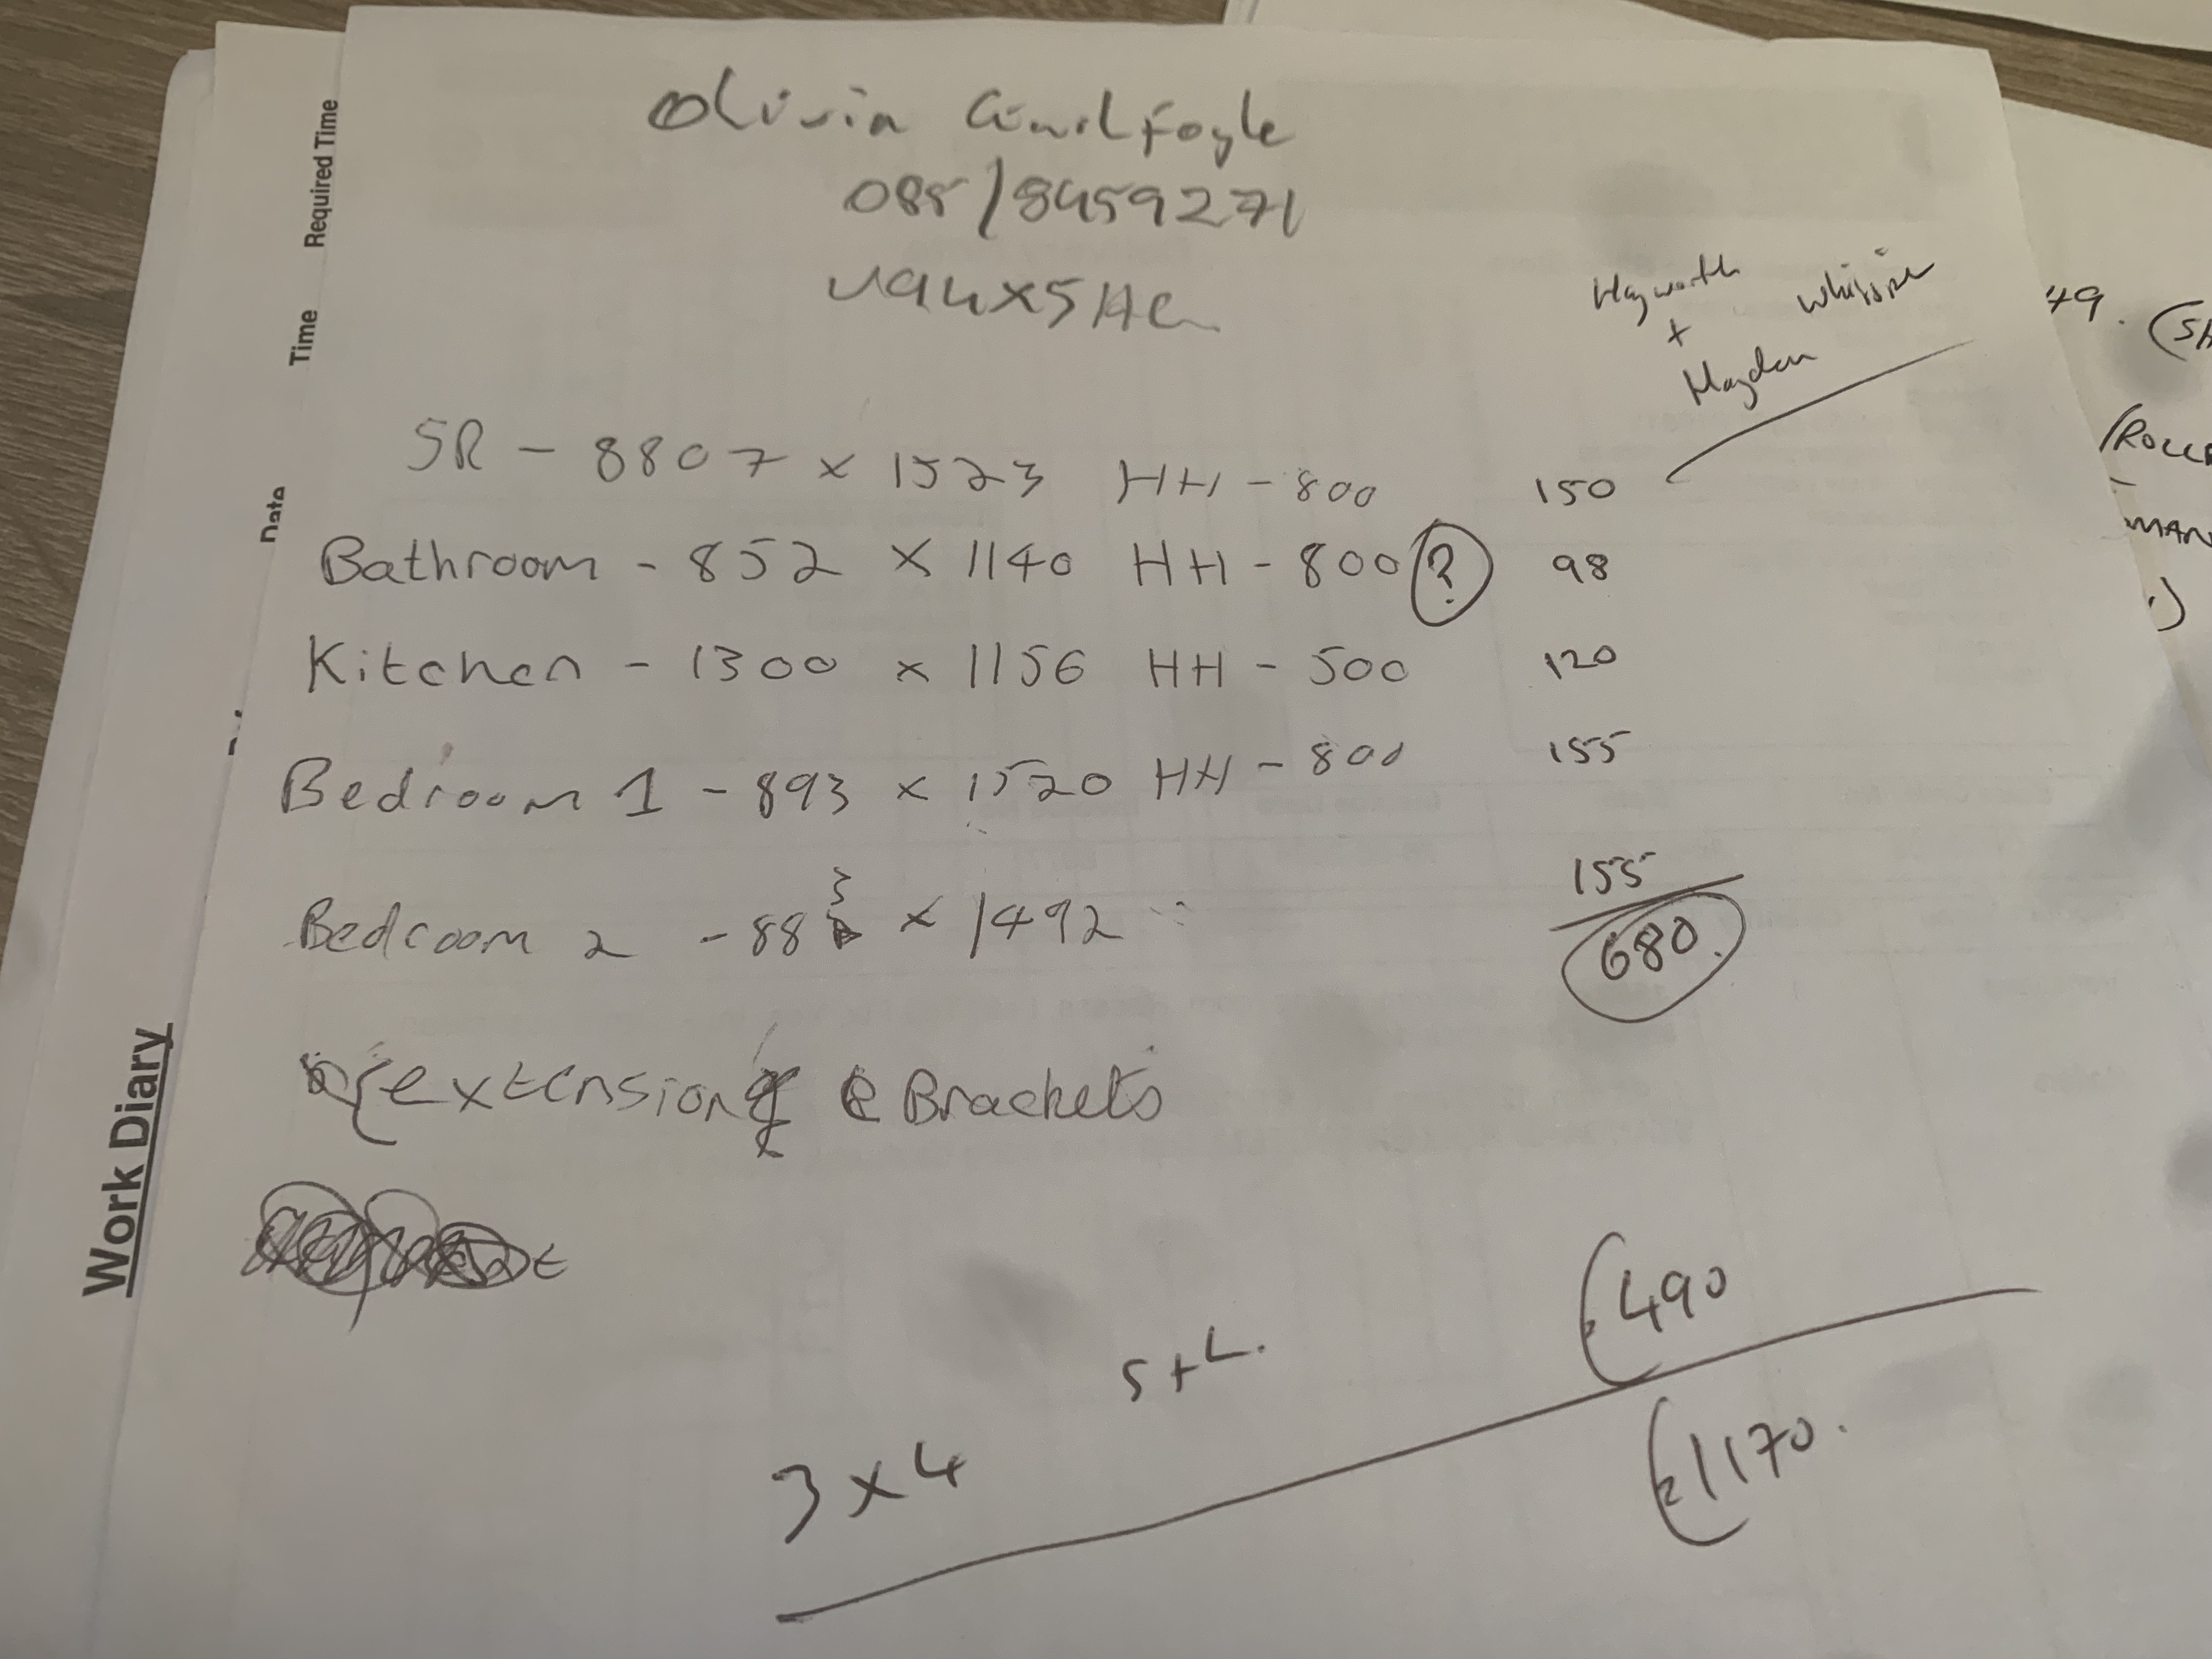 Olivia Guilfoyle
085/8459271
V94X5HC
Hayworth Whisper
+
Hayden
SR - 8807 x 1523 HH - 800 150
Bathroom - 852 x 1140 HH - 800 ? 98
Kitchen - 1300 x 1156 HH - 500 120
Bedroom 1 - 893 x 1520 HH - 800 155
Bedroom 2 - 883 x 1492 " 155
680.
extension Brackets
S+L. €490
3 x 4
€1170.
Work Diary
Date
Time
Required Time
49.